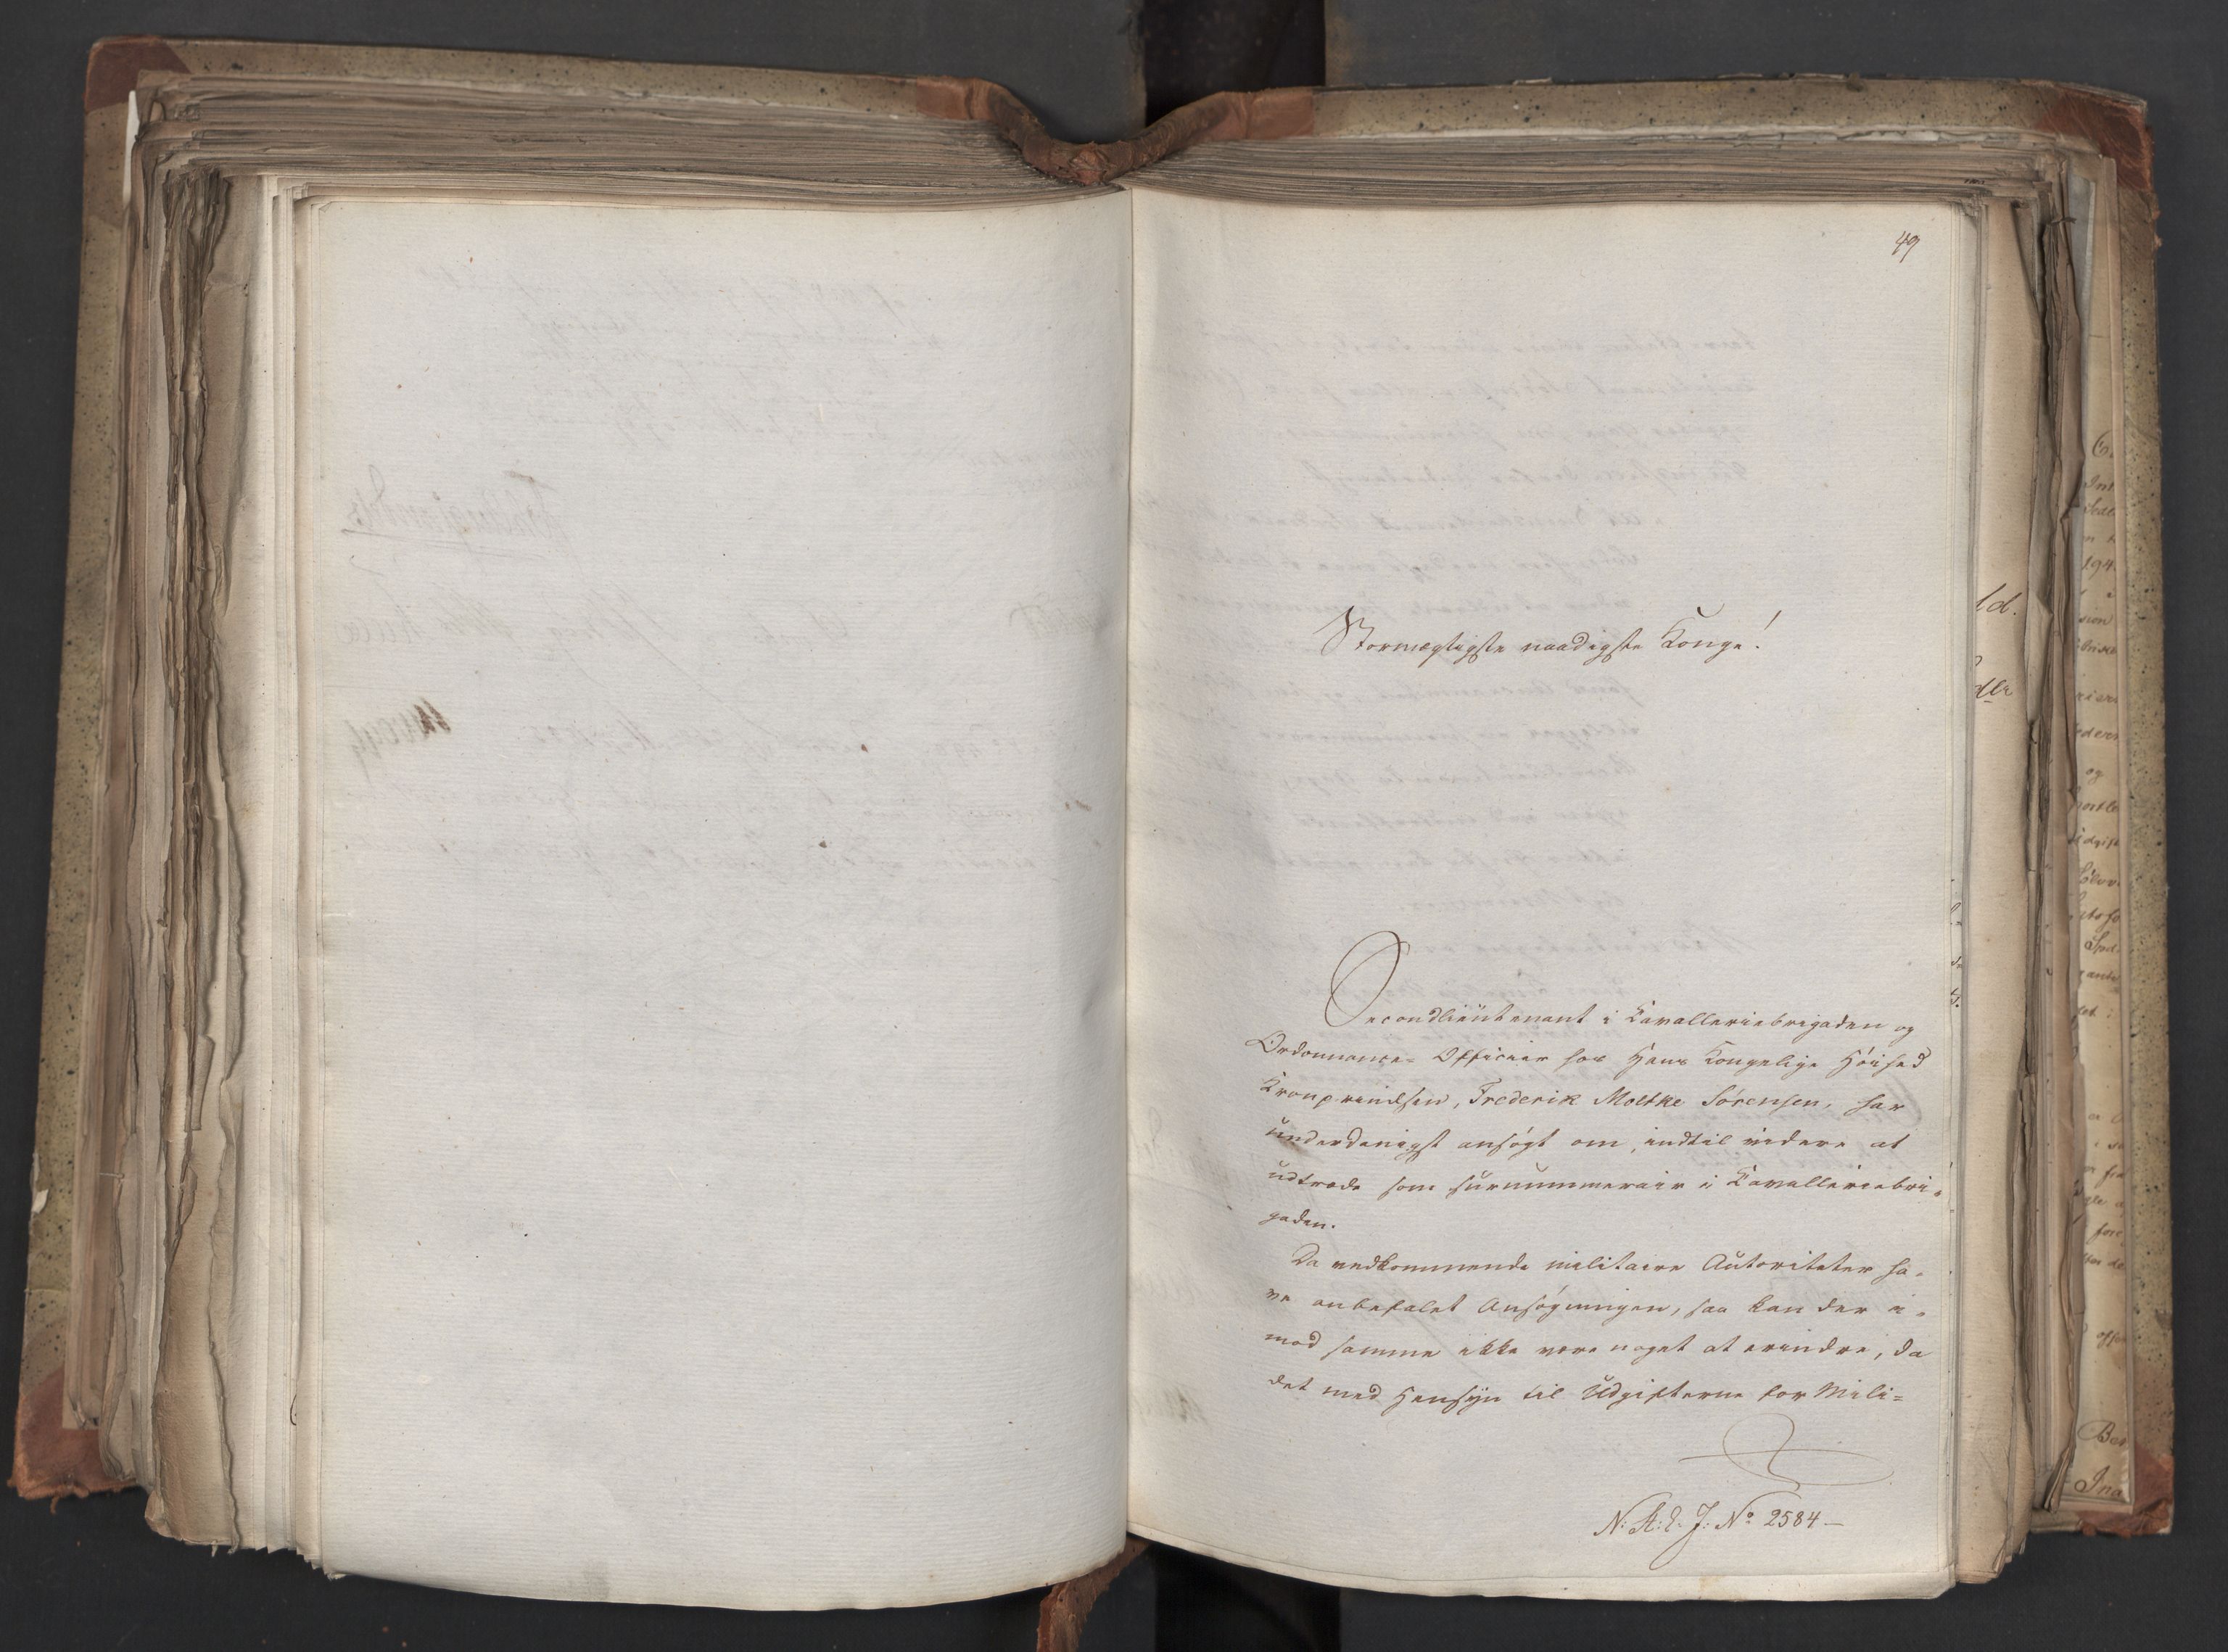 49
Stormægtigste naadigste Konge!
Secondlieutenant i Cavalleriebrigaden og
Ordonnance-Officier hos Hans Kongelige Höihed
Kronprindsen, Frederik Moltke Sörensen, har
underdanigst ansögt om, indtil videre at
udtræde som surnummerair i Cavalleriebri-
gaden.
Da vedkommende militaire Autoriteter ha-
ve anbefalet Ansögningen, saa kan der i-
mod samme ikke være noget at erindre, da
det med Hensyn til Udgifterne for Mili-
N: A: E: J: No 2584 —